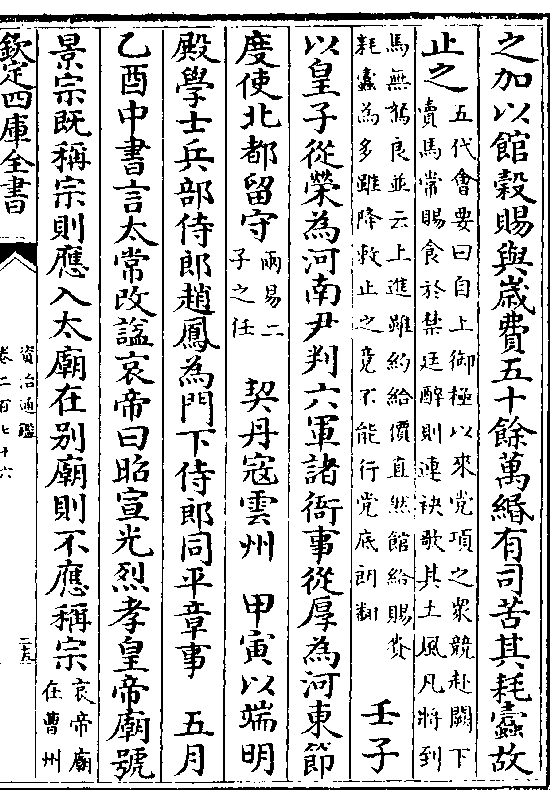 之加以館穀賜與歲費五十餘萬緡有司苦其耗蠹故
止之五代會要曰自上御極以來党項之衆競赴闕下賣馬常賜食於禁廷醉則連袂歌其土風凡將到
馬無駑良並云上進雖約給價直然館給賜賚耗蠹為多雖降敕止之竟不能行党底朗翻 壬子
以皇子從榮為河南尹判六軍諸衛事從厚為河東節
度使北都留守兩易二子之任 契丹寇雲州 甲寅以端明
殿學士兵部侍郎趙鳳為門下侍郎同平章事 五月
乙酉中書言太常改諡哀帝曰昭宣光烈孝皇帝廟號
景宗既稱宗則應入太廟在别廟則不應稱宗哀帝廟在曹州
欽定四庫全書
資治通鑑
卷二百七十六
二十五